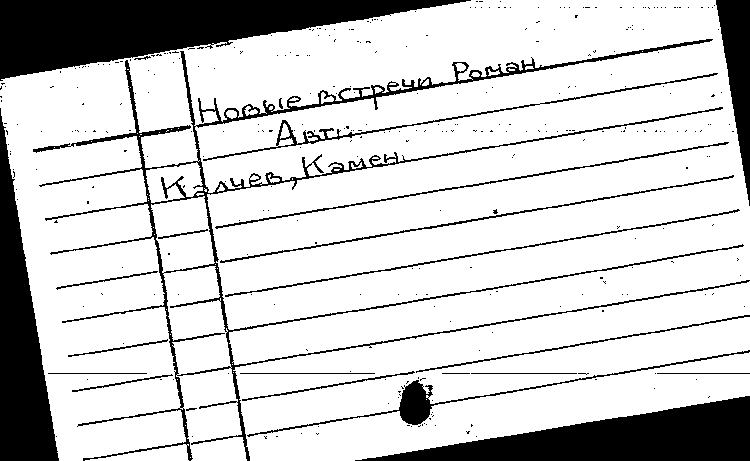 Новые встречи. Роман.
Авт.:
Калчев, Камен.